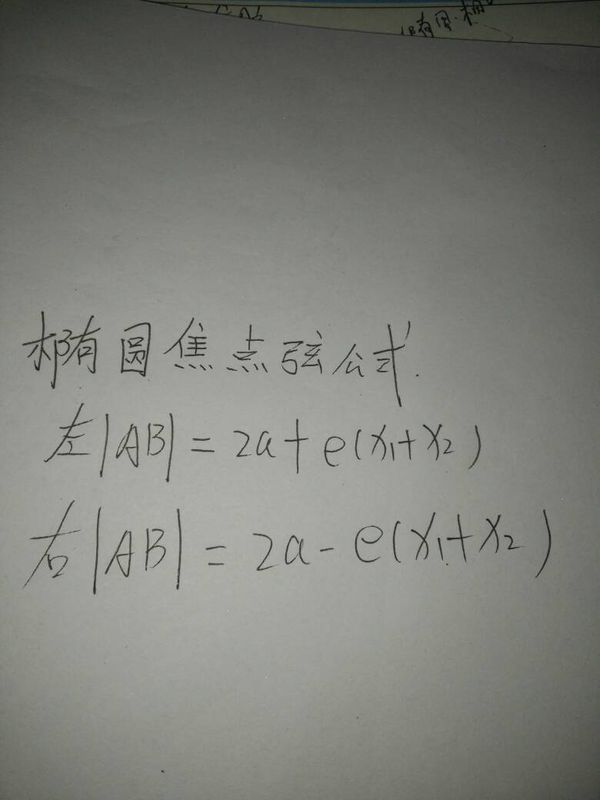 椭圆焦点弦公式.
左|AB|=2a+e(x₁+x₂)
右|AB|=2a-e(x₁+x₂)